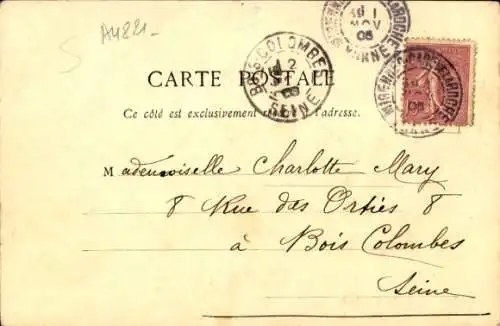 A4821-
CARTE POSTALE
Ce côté est exclusivement réservé à l'adresse.
BOIS-COLOMBES
SEINE
Mademoiselle Charlotte Mary
8 Rue des Orties 8
à Bois Colombes
Seine